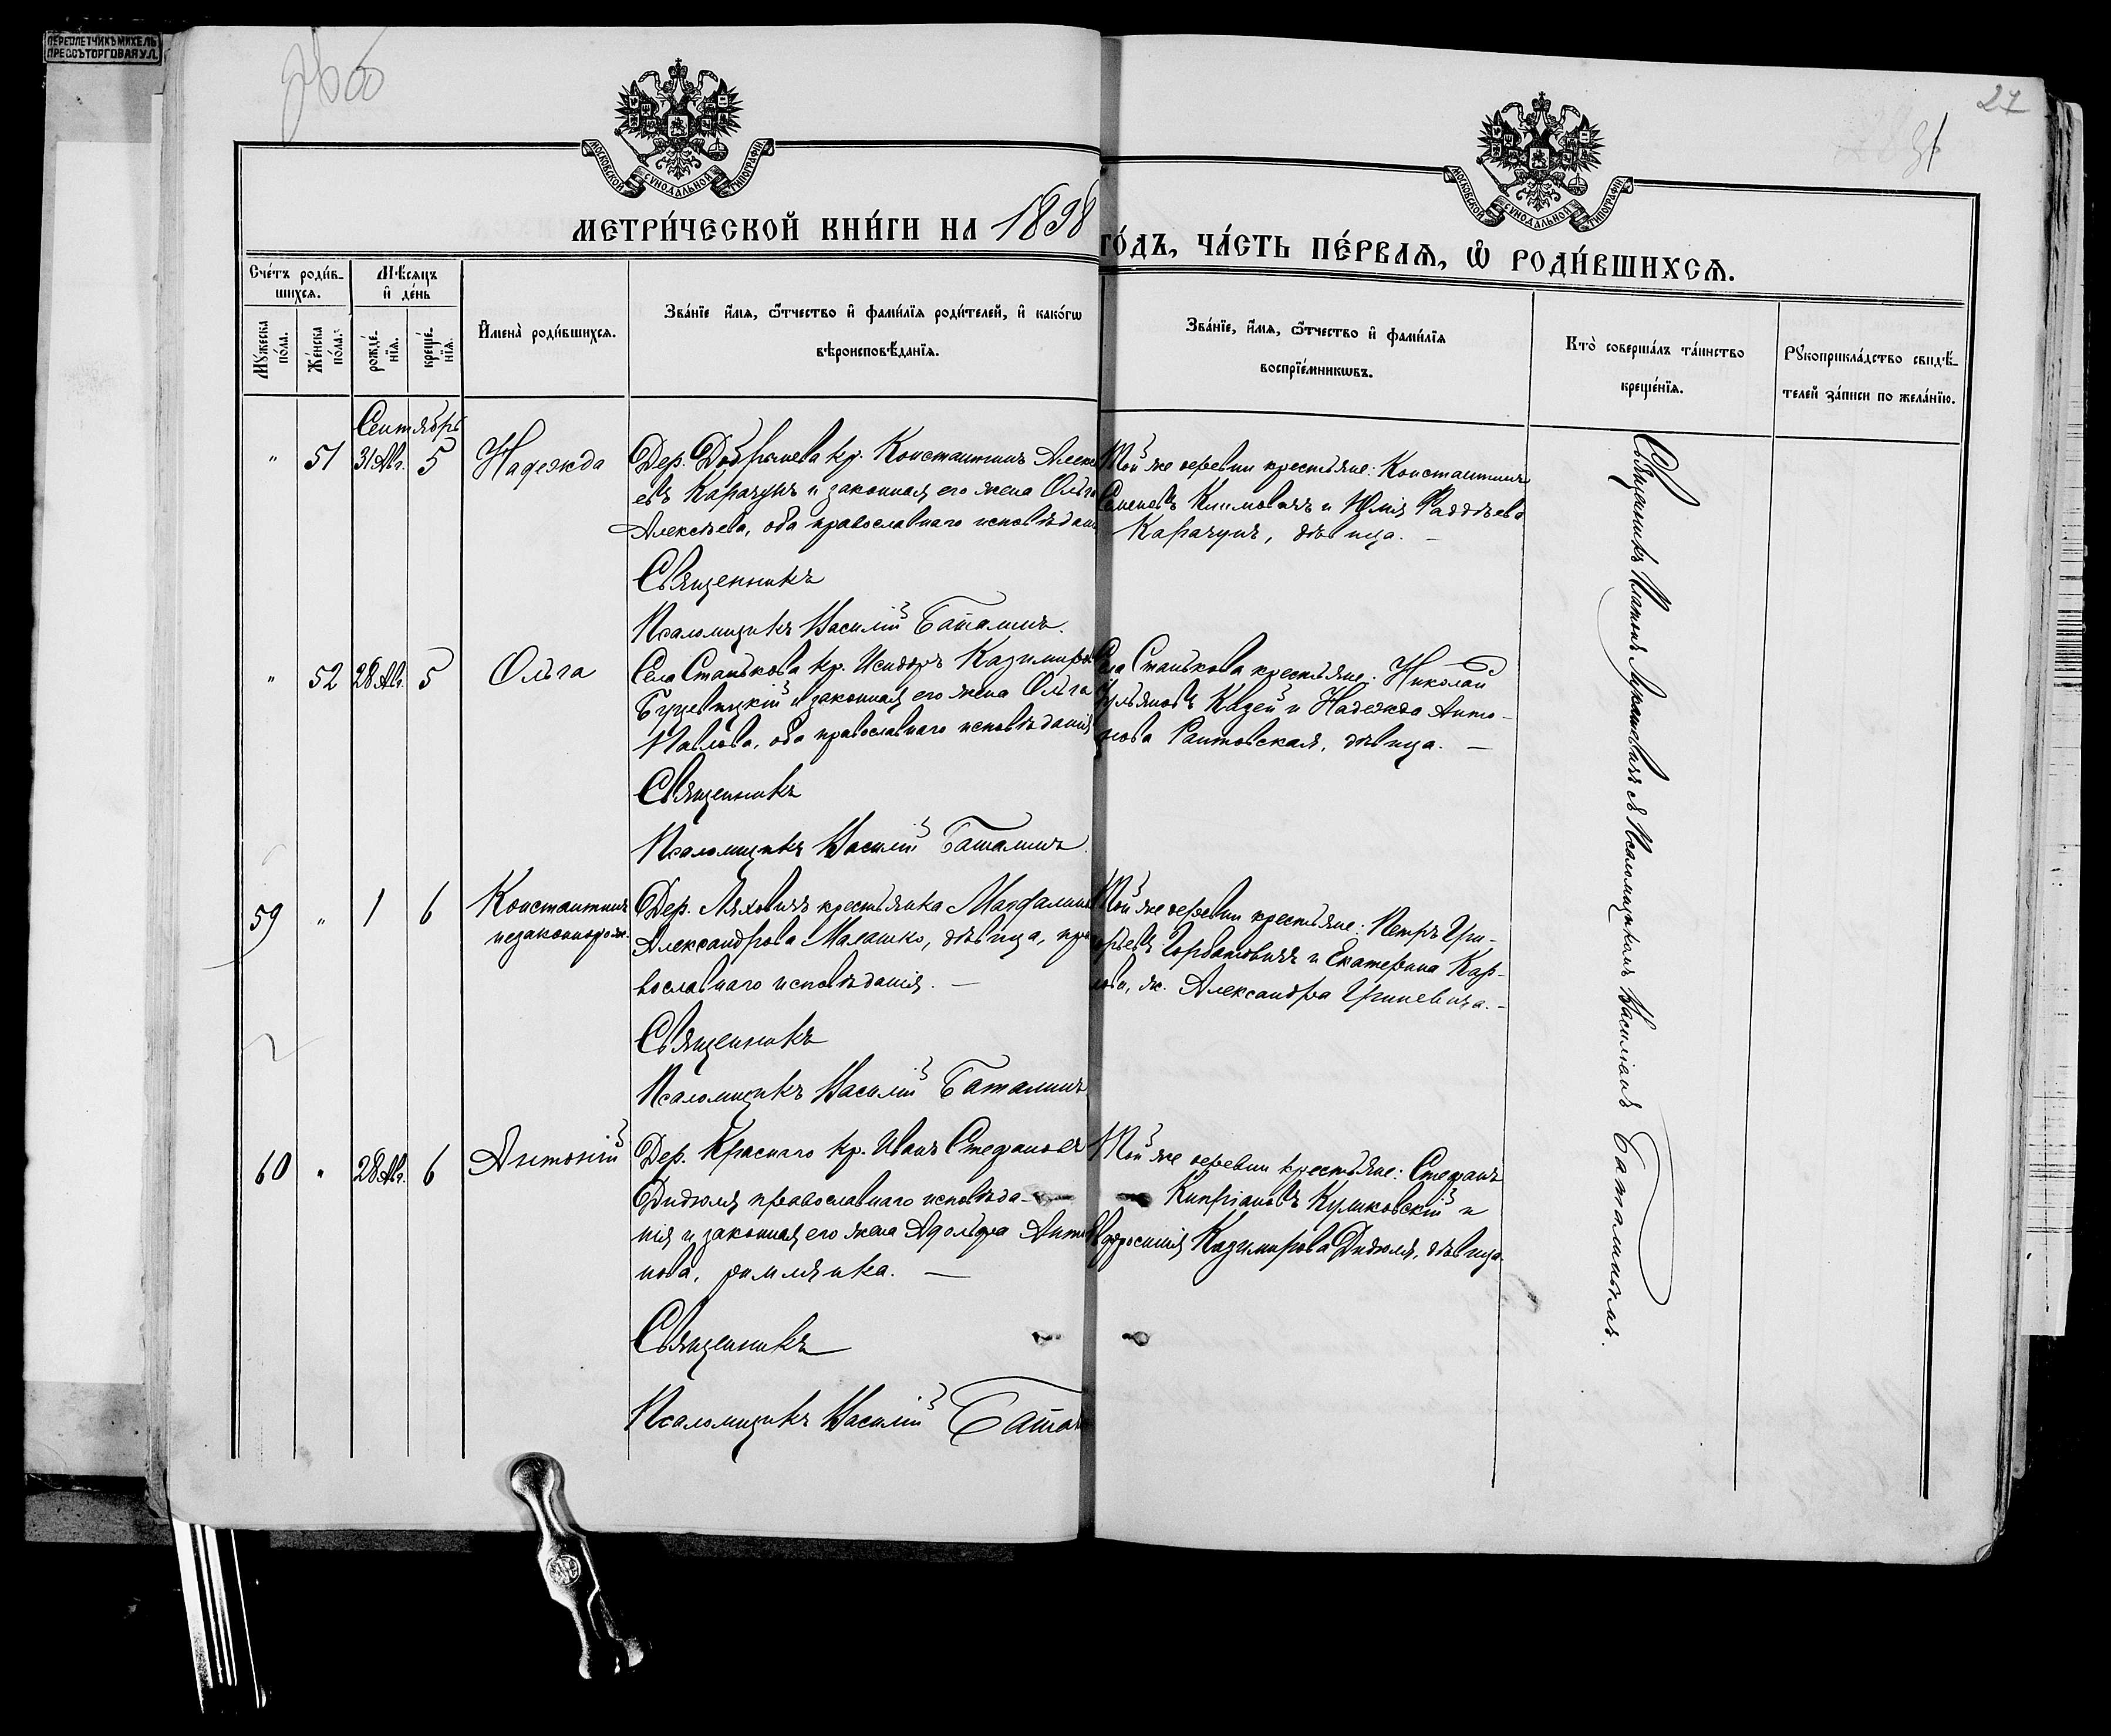 ПЕРЕПЛЕТЧИКЪ МИХЕЛЬ
ПРЕССЪ ТОРГОВАЯ УЛ.
27
31
МОСКОВСКОЙ СѴНОДАЛЬНОЙ ТИПОГРАФІИ
МОСКОВСКОЙ СѴНОДАЛЬНОЙ ТИПОГРАФІИ
МЕТРИ́ЧЕСКОЙ КНИ́ГИ НА 1898
ГО́ДЪ, ЧА́СТЬ ПЕ́РВАѦ, Ѡ РОДИ́ВШИХСѦ.
Сче́тъ роди́в-
шихсѧ.
Мꙋ́жеска
по́ла.
Же́нска
по́ла.
Мѣ́сѧцъ
и҆ де́нь
рожде́-
нїѧ.
креще́-
нїѧ.
И҆мена̀ роди́вшихсѧ.
Зва́нїе и҆́мѧ, ѻ҆́тчество и҆ фами́лїѧ роди́телей, и҆ како́гѡ
вѣроисповѣ́данїѧ.
Зва́нїе, и҆́мѧ, ѻ҆́тчество и҆ фами́лїѧ
воспрїе́мникѡвъ.
Кто̀ соверша́лъ та́инство
креще́нїѧ.
Рꙋкоприкла́дство свидѣ́-
телей за́писи по жела́нїю.
Сентябрь
" 51 31 Авг. 5 Надежда
Дер. Добринева кр. Константинъ Алексѣ
евъ Карачунъ и законная его жена Ольга
Алексѣева, оба православнаго исповѣдані
Священникъ
Псаломщикъ Василій Баталинъ.
Той же деревни крестьяне: Константинъ
Семеновъ Климовичъ и Юлія Фаддѣева
Карачунъ, дѣвица. —
" 52 28 Авг. 5 Ольга
Села Станькова кр. Исидоръ Казимиров
Буцевицкій и законная его жена Ольга
Павлова, оба православнаго исповѣданія
Священникъ
Псаломщикъ Василій Баталинъ.
Села Станькова крестьяне: Николай
Ульяновъ Казей и Надежда Анто-
нова Раитовская, дѣвица. —
59 " 1 6 Константинъ
незаконнорож.
Дер. Ляховичъ крестьянка Магдалина
Александрова Малашко, дѣвица, пра
вославнаго исповѣданія. —
Священникъ
Псаломщикъ Василій Баталинъ
Той же деревни крестьяне: Петръ Гри-
горьевъ Горбатовичъ и Екатерина Кар-
лова, ж. Александра Гриневича. -
60 " 28 Авг. 6 Антоній
Дер. Краснаго кр. Иванъ Стефановъ
Дидюля православнаго исповѣда-
нія и законная его жена Адольфа Анто
нова, римлянка. —
Священникъ
Псаломщикъ Василій Батал
Той же деревни крестьяне: Стефанъ
Кипріановъ Куликовскій и
Ефросинія Казимирова Дидюля, дѣвица.
Священникъ Платонъ съ Псаломщикомъ Василіемъ Баталинымъ.